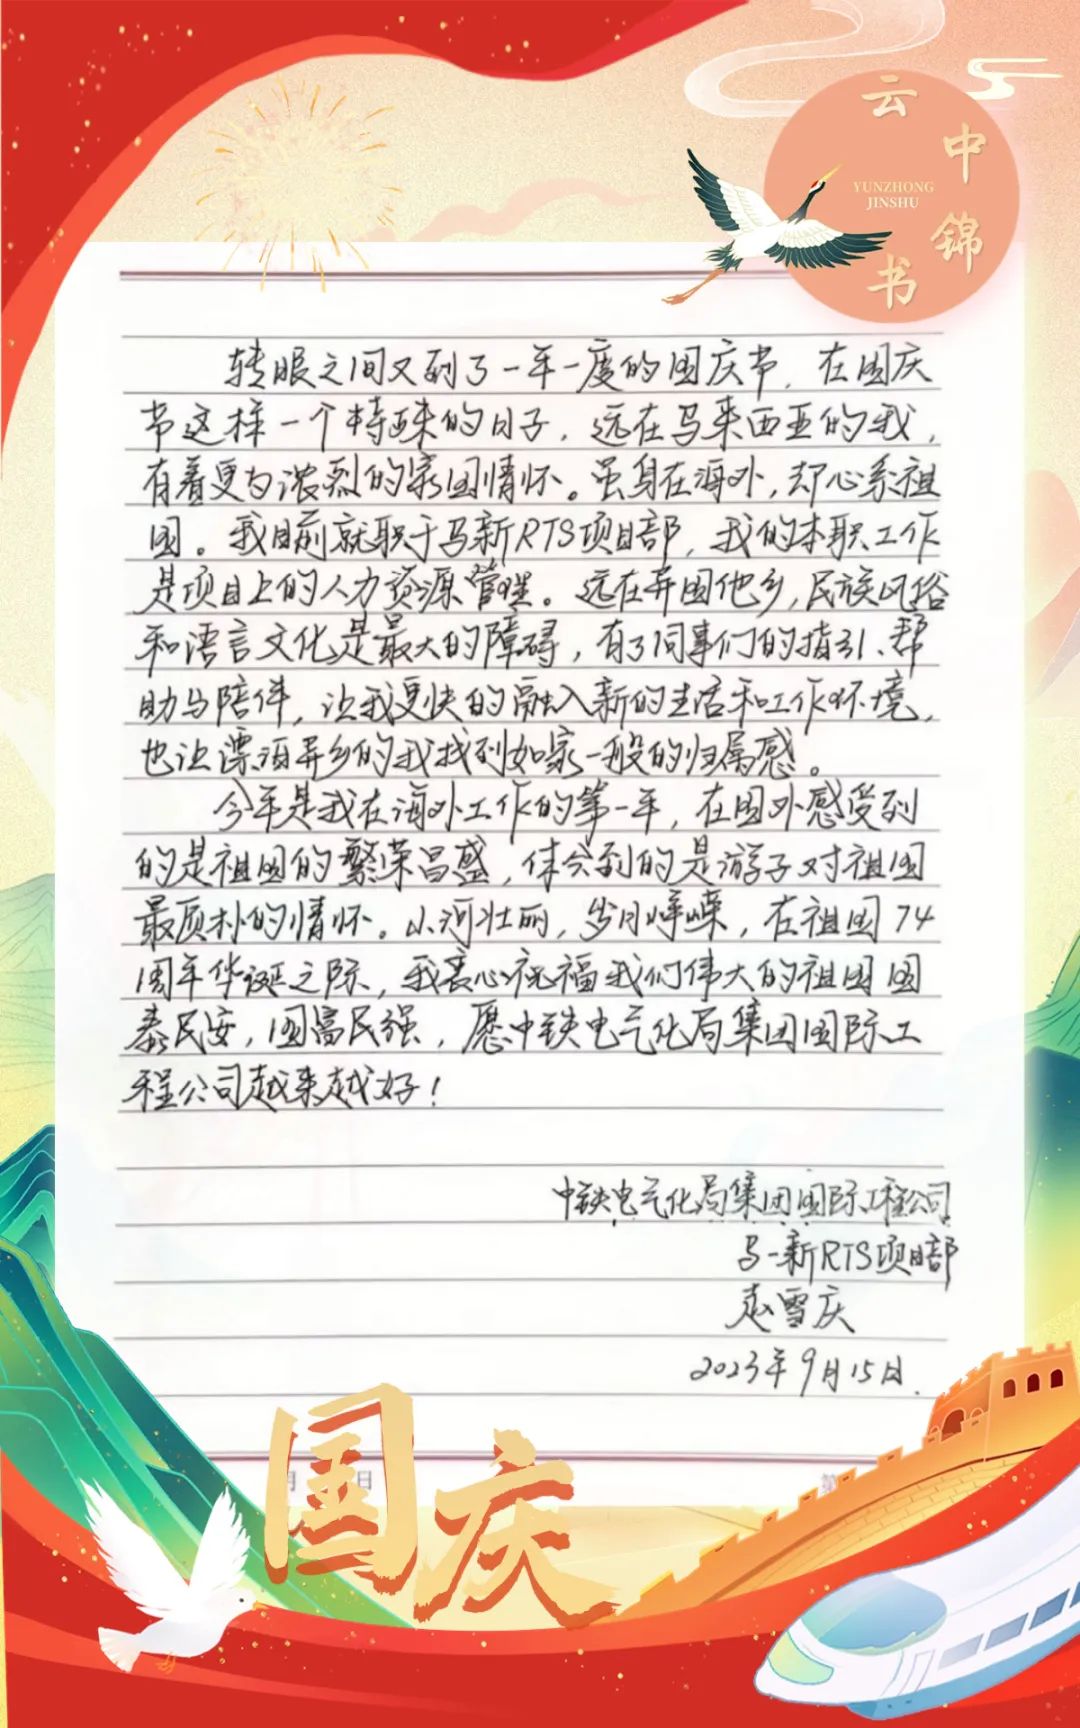 云中锦书
YUNZHONG
JINSHU
转眼之间又到了一年一度的国庆节，在国庆
节这样一个特殊的日子，远在马来西亚的我，
有着更为浓烈的家国情怀。虽身在海外，却心系祖
国。我目前就职于马新RTS项目部，我的本职工作
是项目上的人力资源管理。远在异国他乡，民族风俗
和语言文化是最大的障碍，有了同事们的指引、帮
助与陪伴，让我更快的融入新的生活和工作环境，
也让漂泊异乡的我找到如家一般的归属感。
今年是我在海外工作的第一年，在国外感受到
的是祖国的繁荣昌盛，体会到的是游子对祖国
最质朴的情怀。山河壮丽，岁月峥嵘，在祖国74
周年华诞之际，我衷心祝福我们伟大的祖国国
泰民安，国富民强，愿中铁电气化局集团国际工
程公司越来越好！
中铁电气化局集团国际工程公司
马-新RTS项目部
赵雪庆
2023年9月15日.
月 日 第
国庆